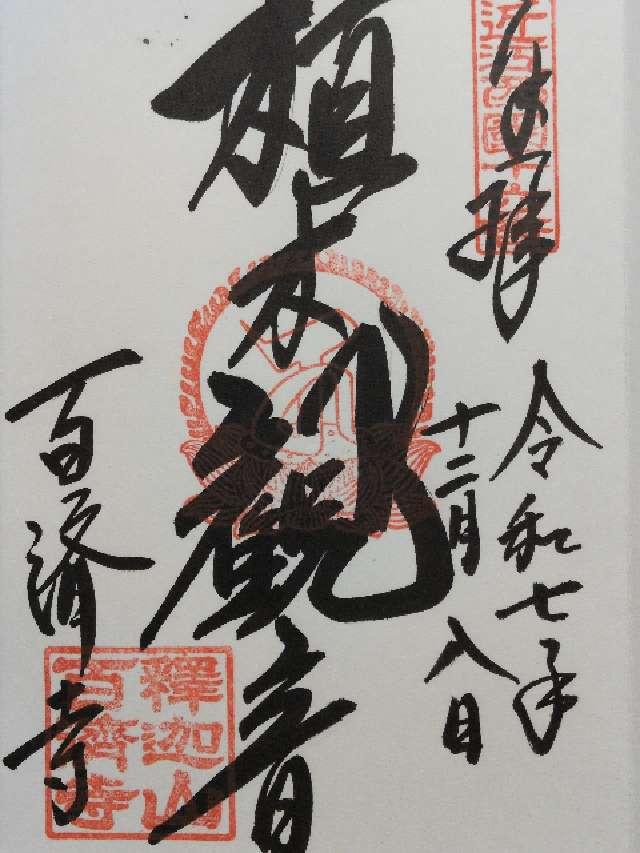 近江西國十六番
奉拝
令和七年
十二月八日
植木觀音
百済寺
釋迦山
百濟寺